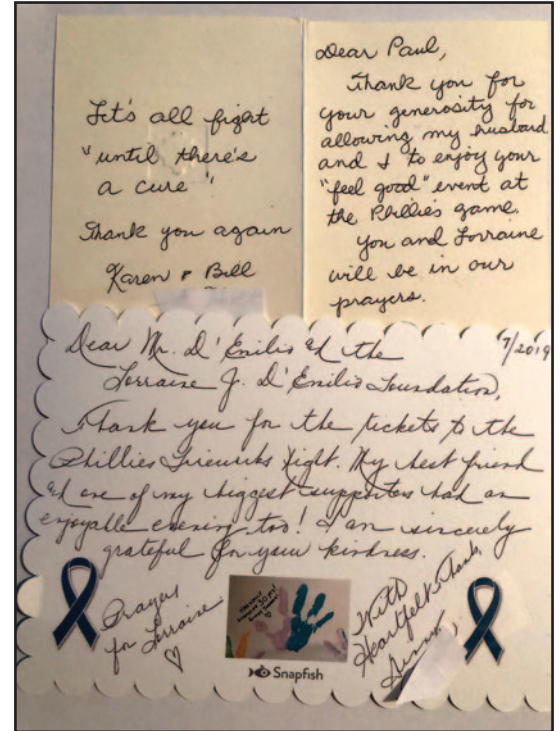 Let's all fight
"until there's
a cure"
Thank you again
Karen & Bill
Dear Paul,
Thank you for
your generosity for
allowing my husband
and I to enjoy your
"feel good" event at
the Phillies game.
You and Lorraine
will be in our
prayers.
7/2019
Dear Mr. D'Emilio & the
Lorraine J. D'Emilio Foundation,
Thank you for the tickets to the
Phillies Fireworks Night. My best friend
& one of my biggest supporters had an
enjoyable evening too! I am sincerely
grateful for your kindness.
Prayers
for Lorraine
♡
With
Heartfelt Thanks,
Snapfish